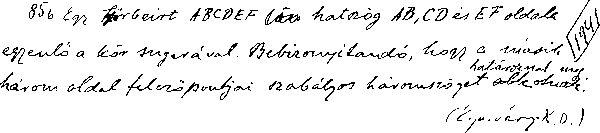 856 Egy körbeirt ABCDEF hatszög AB, CD és EF oldala
egyenlő a kör sugarával. Bebizonyitandó, hogy a másik
1941
három oldal felezőpontjai szabályos háromszöget határoznak meg.